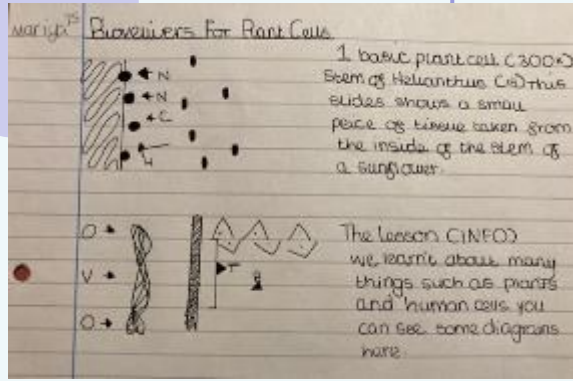 Mariya
For Plant Cells
1 basic plant cell (300x)
Stem of Helianthus
This
slides shows a small
peice of tissue taken from
the inside of the stem of
a sunflower.
N
N
C
The Lesson (INFO)
we learn't about many
things such as plants
and human cells you
can see some diagrams
here.
O
V
O
T